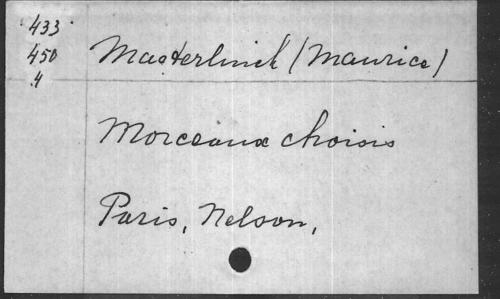 433
450
.4
Maeterlinck (Maurice)
Morceaux choisis
Paris, Nelson,